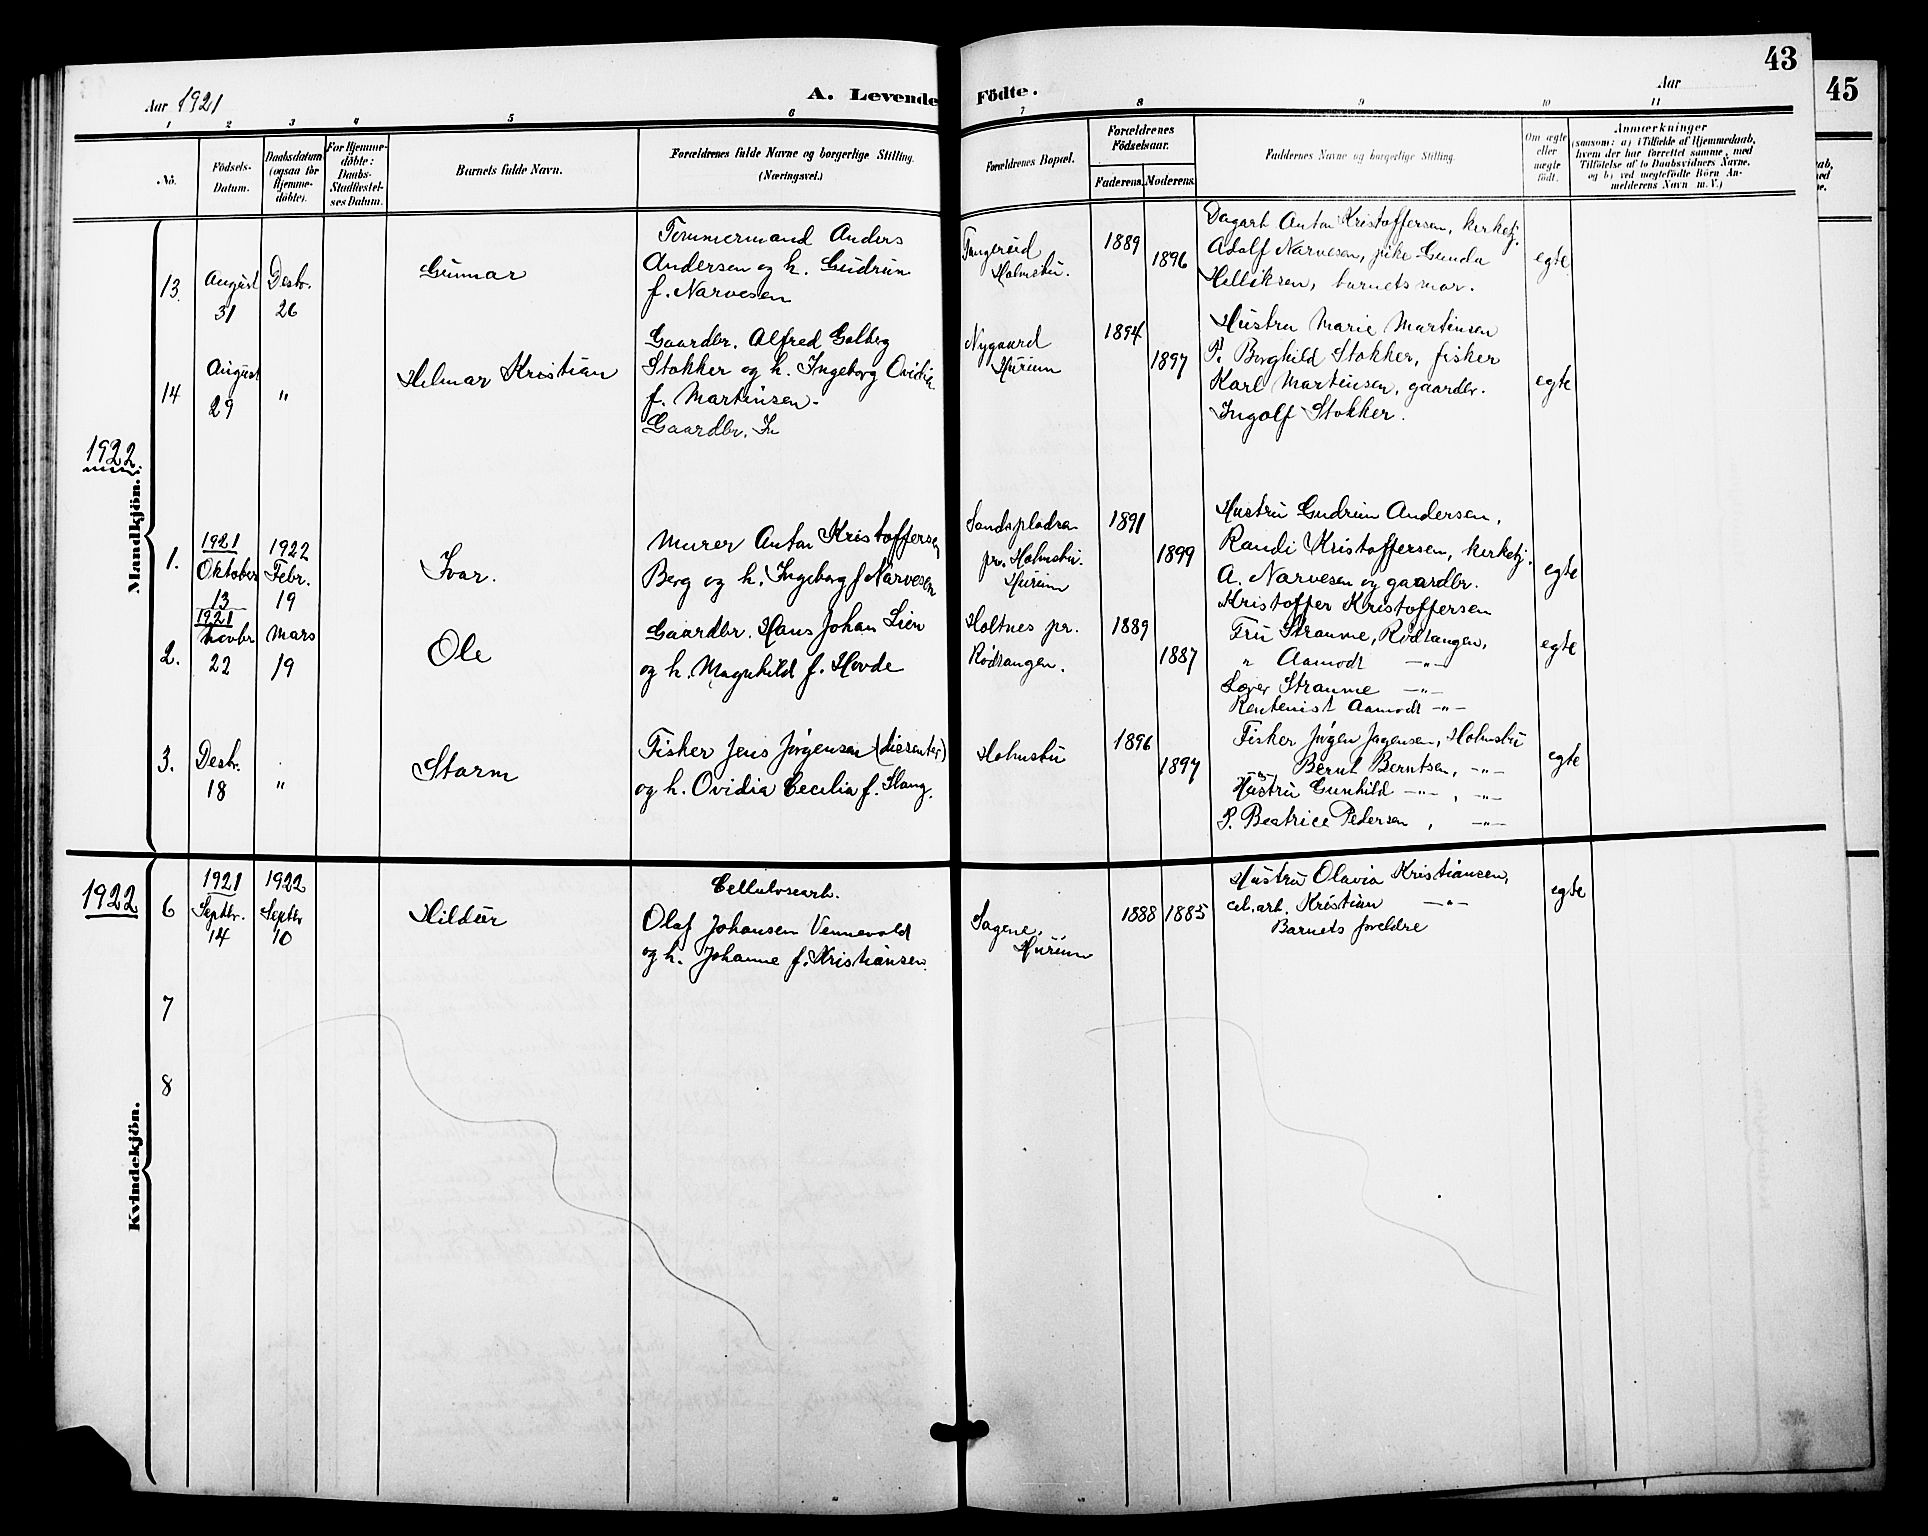 43
45
Aar 1921
A. Levende Födte.
Aar
1 2 3 4 5 6 7 8 9 10 11
No.
Födsels-
Datum.
Daabsdatum
(ogsaa for
Hjemme-
döbte).
For Hjemme-
döbte:
Daabs-
Stadfæstel-
ses Datum.
Barnets fulde Navn.
Forældrenes fulde Navne og borgerlige Stilling.
(Næringsvei.)
Forældrenes Bopæl.
Forældrenes
Födselsaar.
Faderens. Moderens.
Faddernes Navne og borgerlige Stilling.
Om ægte
eller
uægte
födt.
Anmærkninger
(saasom: a) i Tilfælde af Hjemmedaab,
hvem der har forrettet samme, med
Tilföielse af to Daabsvidners Navne.
og b) ved uegtefödte Börn An-
melderens Navn m. V.)
Mandkjön.
13.
August
31
Desbr.
26
Gunnar
Tømmermand Anders
Andersen og h. Gudrun
f. Narvesen
Tangerud
Holmsbu.
1889
1896
Dagarb Anton Kristoffersen, kirketj.
Adolf Narvesen, pike Gunda
Helliksen, barnets mor.
egte
14
August
29
"
Helmar Kristian
Gaardbr. Alfred Golberg
Stokker og h. Ingeborg Ovidia
f. Martinsen.
Gaardbr. In
Nygaard
Hurum
1894
1897
Hustru Marie Martinsen
P. Borghild Stokker, fisker
Karl Martinsen, gaardbr.
Ingolf Stokker.
egte
1922
1.
1921
Oktober
13
1922
Febr.
19
Ivar.
Murer Anton Kristoffersen
Berg og h. Ingeborg f Narvesen
Sandspladsen
pr. Holmsbu.
Hurum
1891
1899
Hustru Gudrun Andersen,
Randi Kristoffersen, kirketj.
A. Narvesen og gaardbr.
Kristoffer Kristoffersen
egte
2.
1921
Novbr
22
Mars
19
Ole
Gaardbr. Hans Johan Lien
og h. Magnhild f. Hovde
Holtnes pr.
Rødtangen.
1889
1887
Fru Straume, Rødtangen,
" Aamodt -"-
Læge Straume -"-
Rentenist Aamodt -"-
egte
3.
Desbr.
18
"
Storm
Fisker Jens Jørgensen (disenter)
og h. Ovidia Cecilia f. Stang.
Holmsbu
1896
1897
Fisker Jørgen Jørgensen, Holmsbu
-"- Bernt Berntsen, -"-
Hustru Gunhild -"-, -"-
P. Beatrice Pedersen, -"-
egte
1922
Kvindekjön.
6
1921
Septbr.
14
1922
Septbr
10
Hildur
Cellulosearb.
Olaf Johansen Vennevold
og h. Johanne f. Kristiansen.
Sagene,
Hurum
1888 1885
Hustru Olavia Kristiansen,
cel. arb. Kristian -"-
Barnets foreldre
egte
7
8